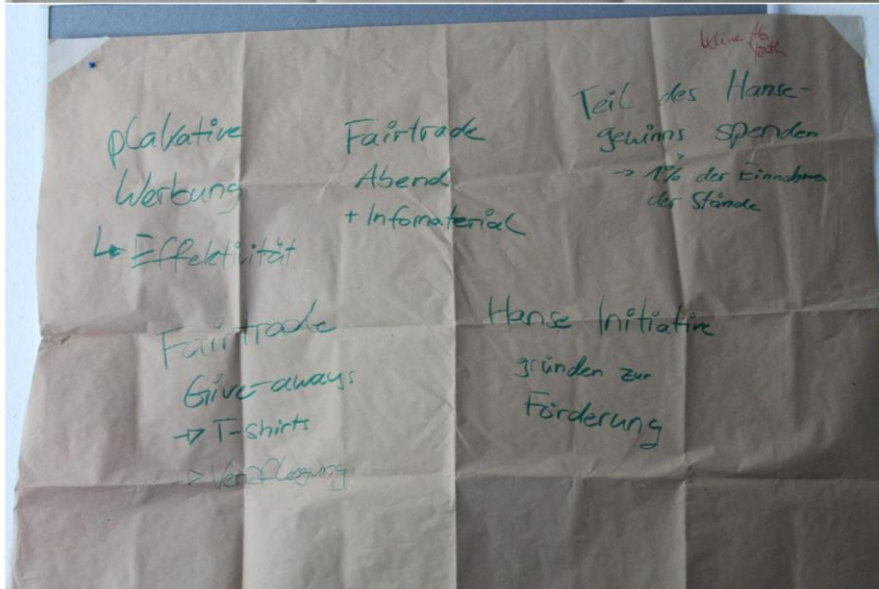 plakative
Werbung
↳ Effektivität
Fairtrade
Abend
+ Infomaterial
Teil des Hanse-
gewinns spenden
→ 1% der Einnahmen
der Stände
Fairtrade
Give-aways
→ T-shirts
→ Verpflegung
Hanse Initiative
gründen zur
Förderung